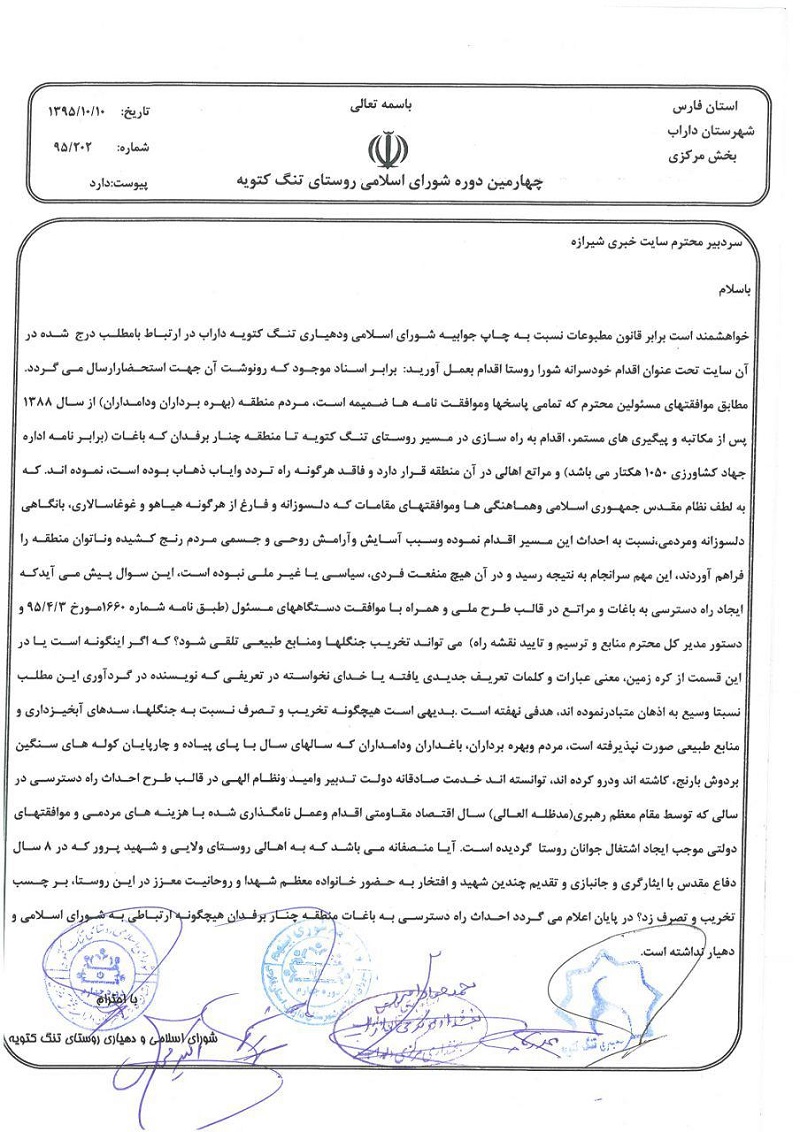 باسمه تعالی
استان فارس
شهرستان داراب
بخش مرکزی
تاریخ: ۱۳۹۵/۱۰/۱۰
شماره: ۹۵/۲۰۲
پیوست:دارد
چهارمین دوره شورای اسلامی روستای تنگ کتویه
سردبیر محترم سایت خبری شیرازه
باسلام
خواهشمند است برابر قانون مطبوعات نسبت به چاپ جوابیه شورای اسلامی ودهیاری تنگ کتویه داراب در ارتباط بامطلب درج شده در
آن سایت تحت عنوان اقدام خودسرانه شورا روستا اقدام بعمل آورید: برابر اسناد موجود که رونوشت آن جهت استحضارارسال می گردد.
مطابق موافقتهای مسئولین محترم که تمامی پاسخها وموافقت نامه ها ضمیمه است، مردم منطقه (بهره برداران ودامداران) از سال ۱۳۸۸
پس از مکاتبه و پیگیری های مستمر، اقدام به راه سازی در مسیر روستای تنگ کتویه تا منطقه چنار برفدان که باغات (برابر نامه اداره
جهاد کشاورزی ۱۰۵۰ هکتار می باشد) و مراتع اهالی در آن منطقه قرار دارد و فاقد هرگونه راه تردد وایاب ذهاب بوده است، نموده اند. که
به لطف نظام مقدس جمهوری اسلامی وهماهنگی ها وموافقتهای مقامات که دلسوزانه و فارغ از هرگونه هیاهو و غوغاسالاری، بانگاهی
دلسوزانه ومردمی،نسبت به احداث این مسیر اقدام نموده وسبب آسایش وآرامش روحی و جسمی مردم رنج کشیده وناتوان منطقه را
فراهم آوردند، این مهم سرانجام به نتیجه رسید و در آن هیچ منفعت فردی، سیاسی یا غیر ملی نبوده است، این سوال پیش می آیدکه
ایجاد راه دسترسی به باغات و مراتع در قالب طرح ملی و همراه با موافقت دستگاههای مسئول (طبق نامه شماره ۱۶۶۰مورخ ۹۵/۴/۳ و
دستور مدیر کل محترم منابع و ترسیم و تایید نقشه راه) می تواند تخریب جنگلها ومنابع طبیعی تلقی شود؟ که اگر اینگونه است یا در
این قسمت از کره زمین، معنی عبارات و کلمات تعریف جدیدی یافته یا خدای نخواسته در تعریفی که نویسنده در گردآوری این مطلب
نسبتا وسیع به اذهان متبادرنموده اند، هدفی نهفته است .بدیهی است هیچگونه تخریب و تصرف نسبت به جنگلها، سدهای آبخیزداری و
منابع طبیعی صورت نپذیرفته است، مردم وبهره برداران، باغداران ودامداران که سالهای سال با پای پیاده و چارپایان کوله های سنگین
بردوش بارنج، کاشته اند ودرو کرده اند، توانسته اند خدمت صادقانه دولت تدبیر وامید ونظام الهی در قالب طرح احداث راه دسترسی در
سالی که توسط مقام معظم رهبری(مدظله العالی) سال اقتصاد مقاومتی اقدام وعمل نامگذاری شده با هزینه های مردمی و موافقتهای
دولتی موجب ایجاد اشتغال جوانان روستا گردیده است. آیا منصفانه می باشد که به اهالی روستای ولایی و شهید پرور که در ۸ سال
دفاع مقدس با ایثارگری و جانبازی و تقدیم چندین شهید و افتخار به حضور خانواده معظم شهدا و روحانیت معزز در این روستا، بر چسب
تخریب و تصرف زد؟ در پایان اعلام می گردد احداث راه دسترسی به باغات منطقه چنار برفدان هیچگونه ارتباطی به شورای اسلامی و
دهیار نداشته است.
با احترام
شورای اسلامی و دهیاری روستای تنگ کتویه